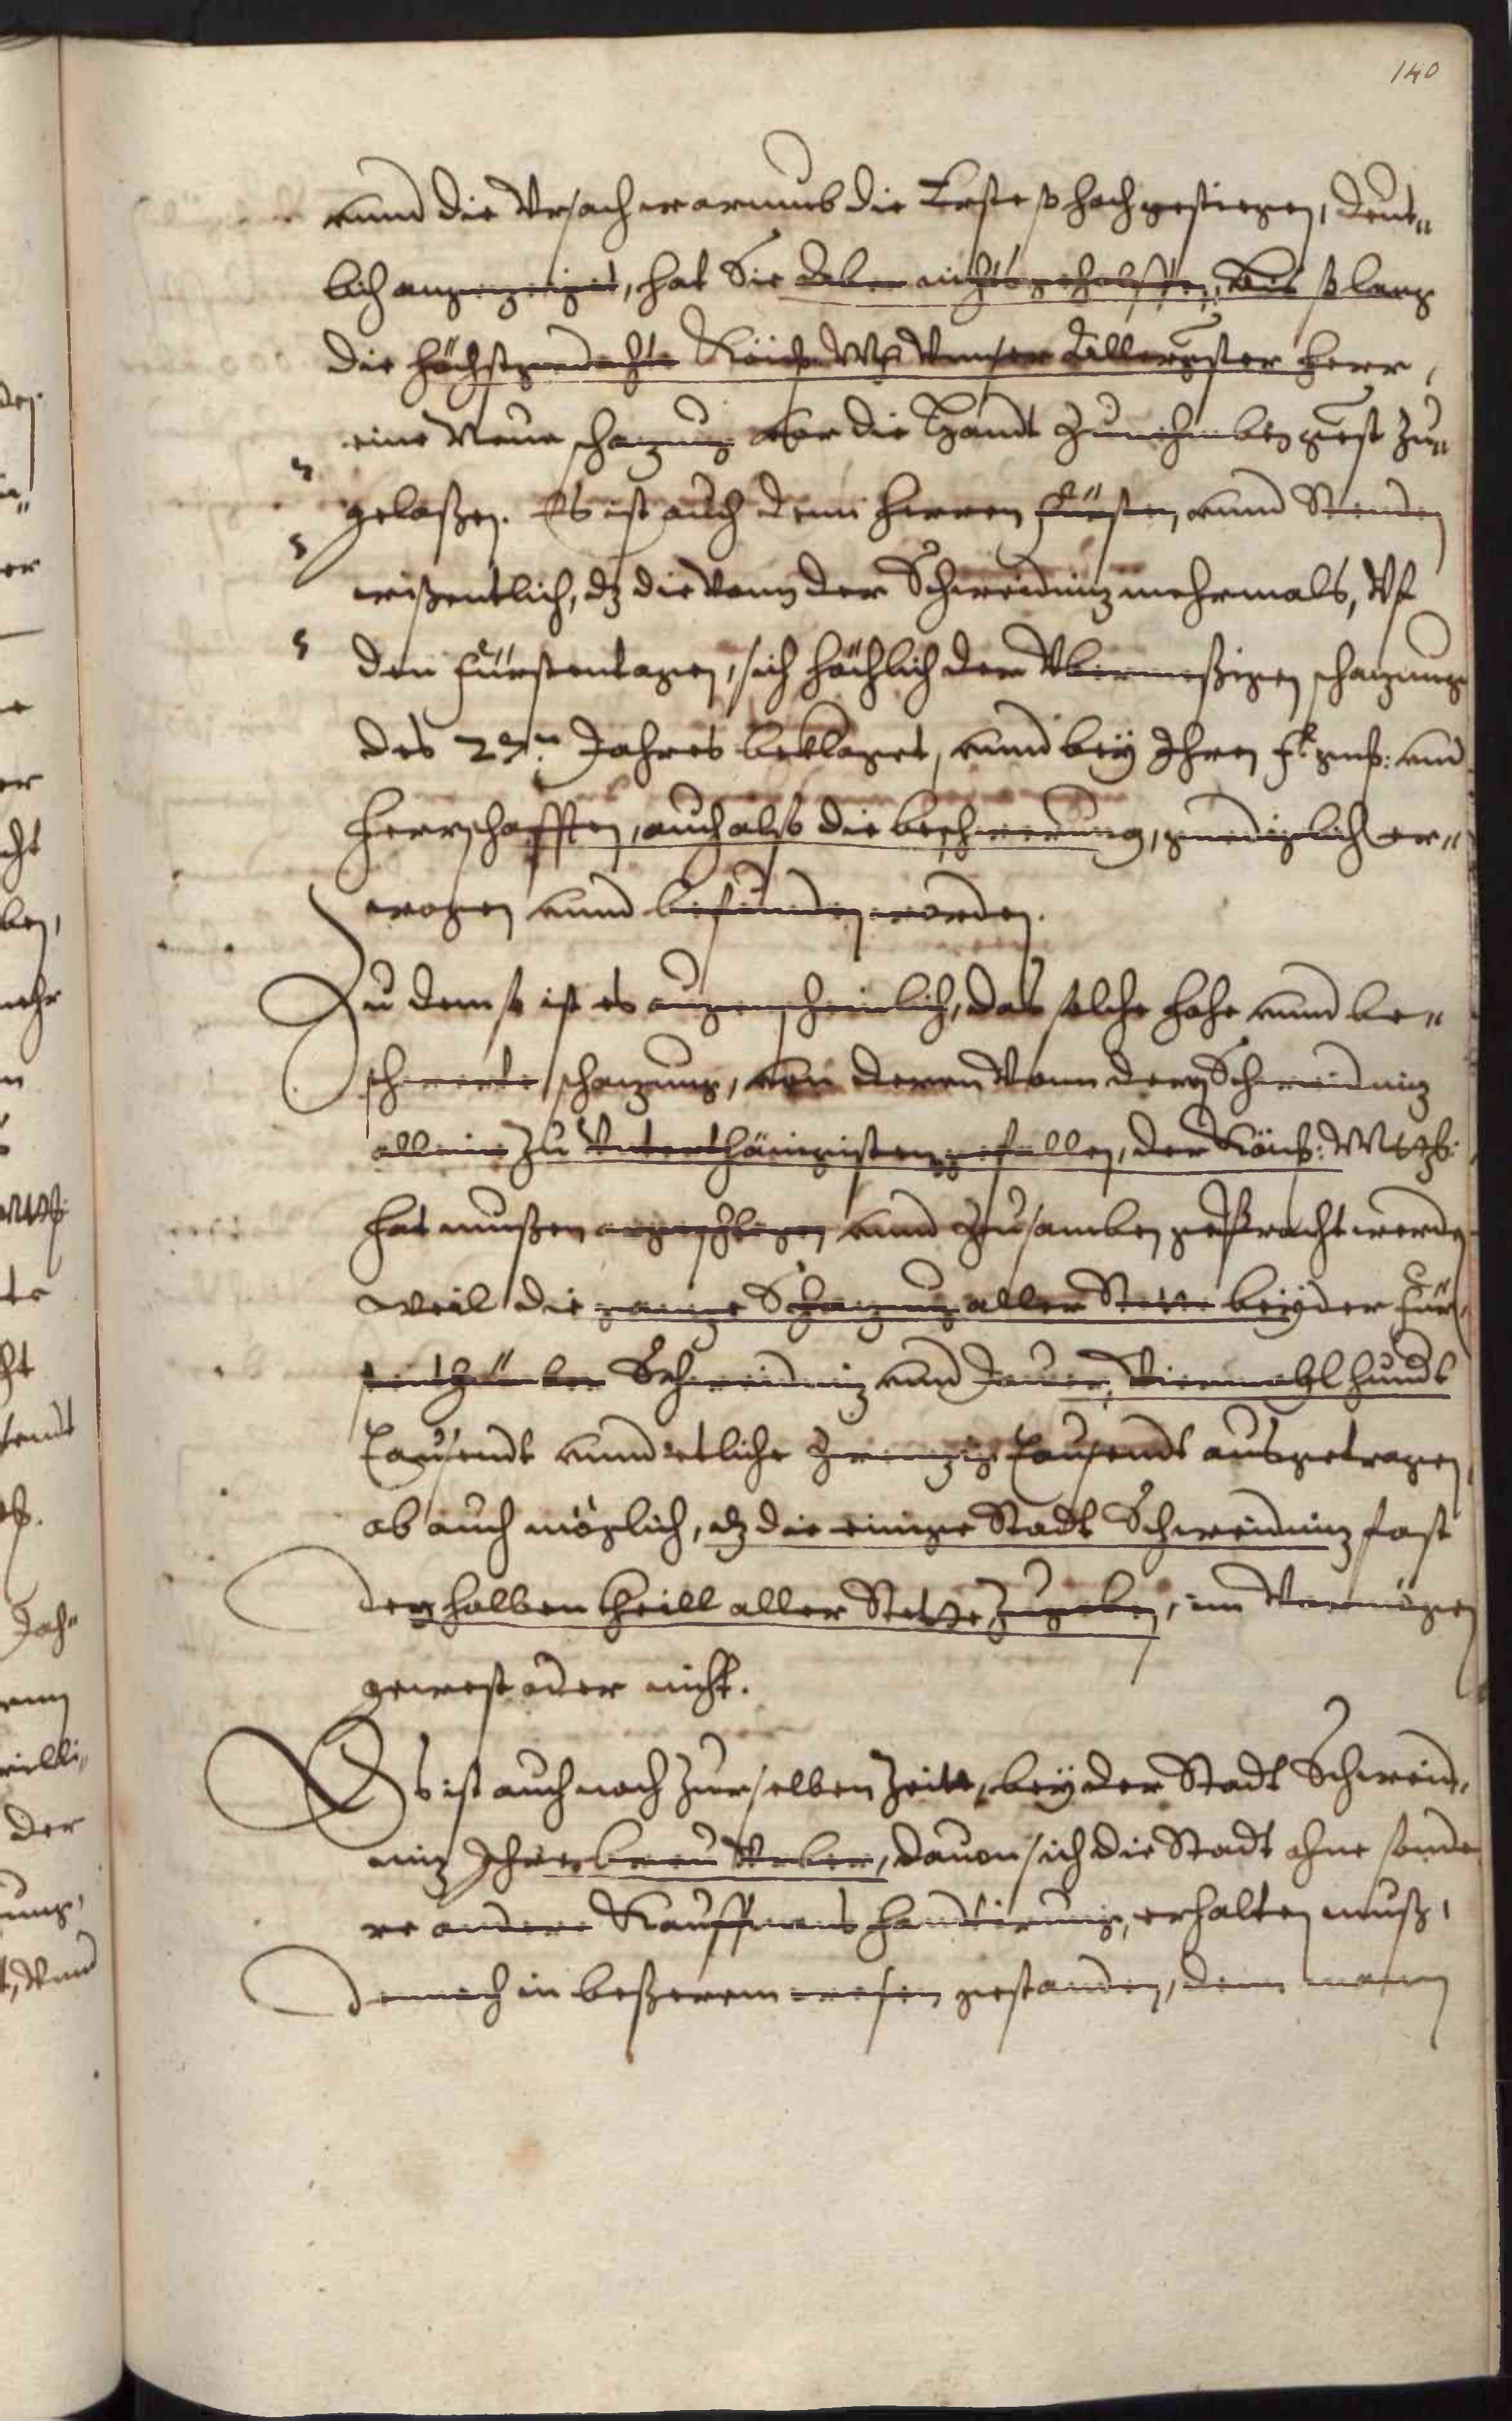 140
vnnd die Vrsach warumb die Erste so hoch gestiegen, deut„
lich angezeiget, hat Sie aber nichts geholffen, bis so lang
die höchstgedachte Kön: Mt: Vnser Allergster Herr,
eine Neue schazung vor die Handt zunehmben gnest zu„
gelaßen. Es ist auch denn Herren Fürsten, vnnd Stenden
wißentlich, dz die vonn der Schweidniz mehrmals, Vf
den Fürstentagen, sich höchlich der Vbermeßigen schazung
des 27.ten Jahres beklaget, vnnd bey Ihren fl. gnd: vnd
Herrschafften, auch alß die beschwerung, gnediglich er„
wogen vnnd befunden worden.
Zu dem so ist es augenscheinlich, das solche hohe vnnd be„
schwerte schazung, von denen Vonn der Schweidniz
allein zu Vnterthänigisten gefallen, der Kön: Mtt:
hat mußen angeschlagen vnnd zusamben gebracht werden
weil die ganze Schazung aller Stette beyder Für„
stenthümber Schweidniz vnnd Jauer, Viermahl hundt
Tausendt vnnd etliche zwenzig Tausendt ausgetragen,
ob auch möglich, dz die einige Stadt Schweidniz fast
den halben theill aller Stette zugeben, im Vermögen
gewest oder nicht.
Es ist auch noch zur selben Zeitt, bey der Stadt Schweid„
niz Ihr breu Vrber, dauon sich die Stadt ohne sonde
re andere Kauffmans handtirung, erhalten muß,
dennoch in beßerem wesen gestanden, denn wann